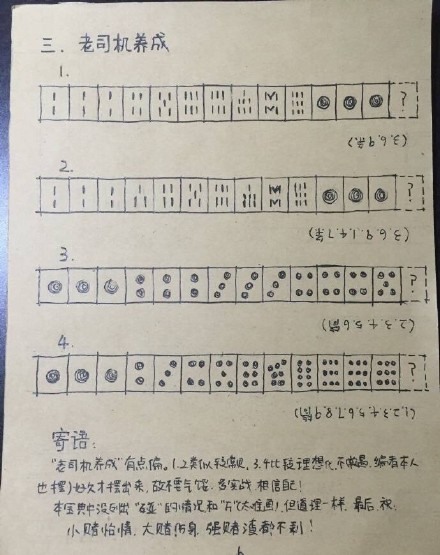 三. 老司机养成
1.
?
(3.6.9条)
2.
?
(3.6.9.1.4.7条)
3.
?
(2.3.4.5.6筒)
4.
?
(1.2.3.4.5.6.7.8.9筒)
寄语:
"老司机养成"有点偏。1.2类似较常规, 3.4比较理想化,不常遇,编者本人
也摆了好久才摆出来,故不要气馁,多实战,相信自己!
本宝典中没列出"碰"的情况和"万"(太难画),但道理一样,最后,祝:
小赌怡情,大赌伤身,强赌渣都不剩!